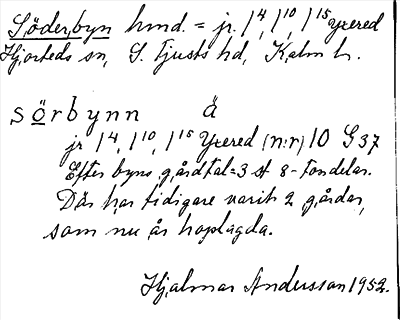 Söderbyn hmd. = jr. 1⁴, 1¹⁰, 1¹⁵ Yxered
Hjorteds sn, S. Tjusts hd, Kalm l.
sörbynn ä
jr 1⁴, 1¹⁰, 1¹⁵ Yxered (n:r) 10 G 37
Efter byns gårdtal = 3 st 8-tondelar.
Där har tidigare varit 2 gårdar,
som nu är hoplagda.
Hjalmar Andersson 1952.